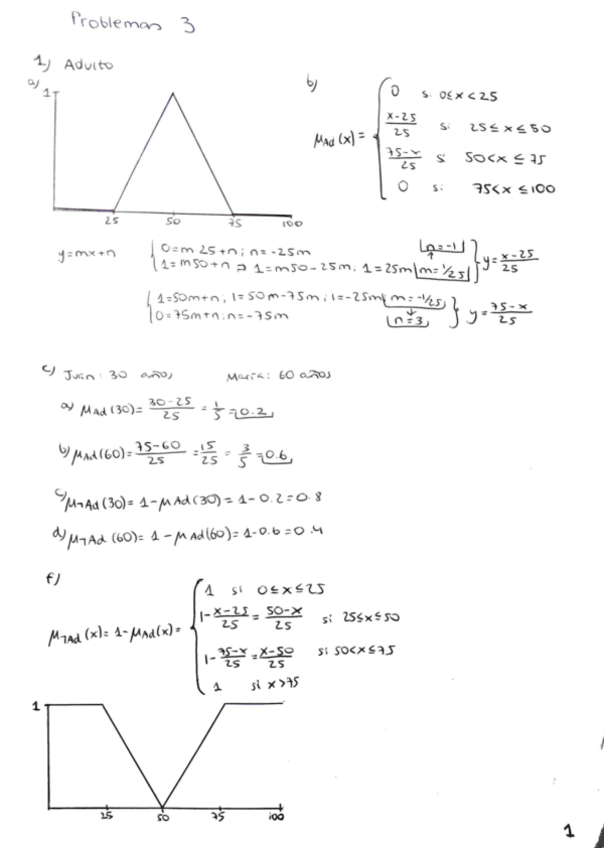 Problemas 3
1) Adulto
a)
1
25 50 75 100
b)
μAd (x) =
0 si 0≤x<25
x-25/25 si 25≤x≤50
75-x/25 si 50<x≤75
0 si 75<x≤100
y=mx+n
0=m25+n; n=-25m
n=-1
1=m50+n ⇒ 1=m50-25m; 1=25m m=1/25
y=x-25/25
1=50m+n, 1=50m-75m; 1=-25m m=-1/25
0=75m+n; n=-75m n=3
y=75-x/25
c) Juan: 30 años María: 60 años
a) μAd(30)= 30-25/25 = 1/5 = 0.2
b) μAd(60)= 75-60/25 = 15/25 = 3/5 = 0.6
c) μ¬Ad(30)= 1-μAd(30)= 1-0.2=0.8
d) μ¬Ad(60)= 1-μAd(60)= 1-0.6=0.4
f)
μ¬Ad(x)= 1-μAd(x)=
1 si 0≤x≤25
1-x-25/25 = 50-x/25 si 25≤x≤50
1-75-x/25 = x-50/25 si 50<x≤75
1 si x>75
1
25 50 75 100
1